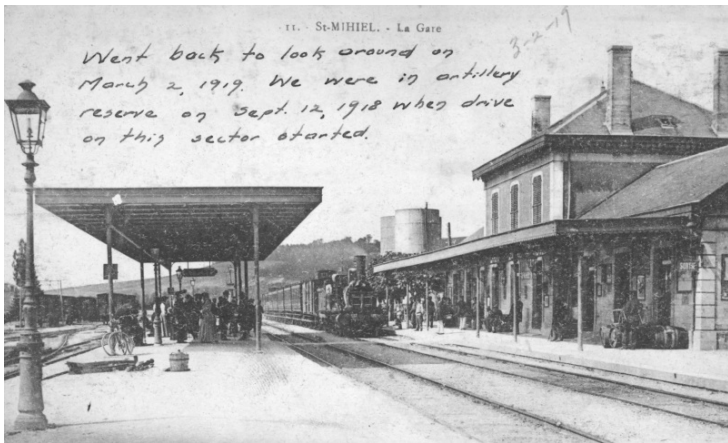 11. - St-MIHIEL. - La Gare
3-2-19
Went back to look around on
March 2, 1919. We were in artillery
reserve on Sept. 12, 1918 when drive
on this sector started.